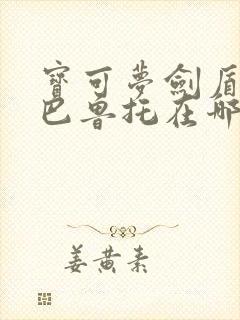 寶可夢劍盾
巴魯托在哪
姜黄素